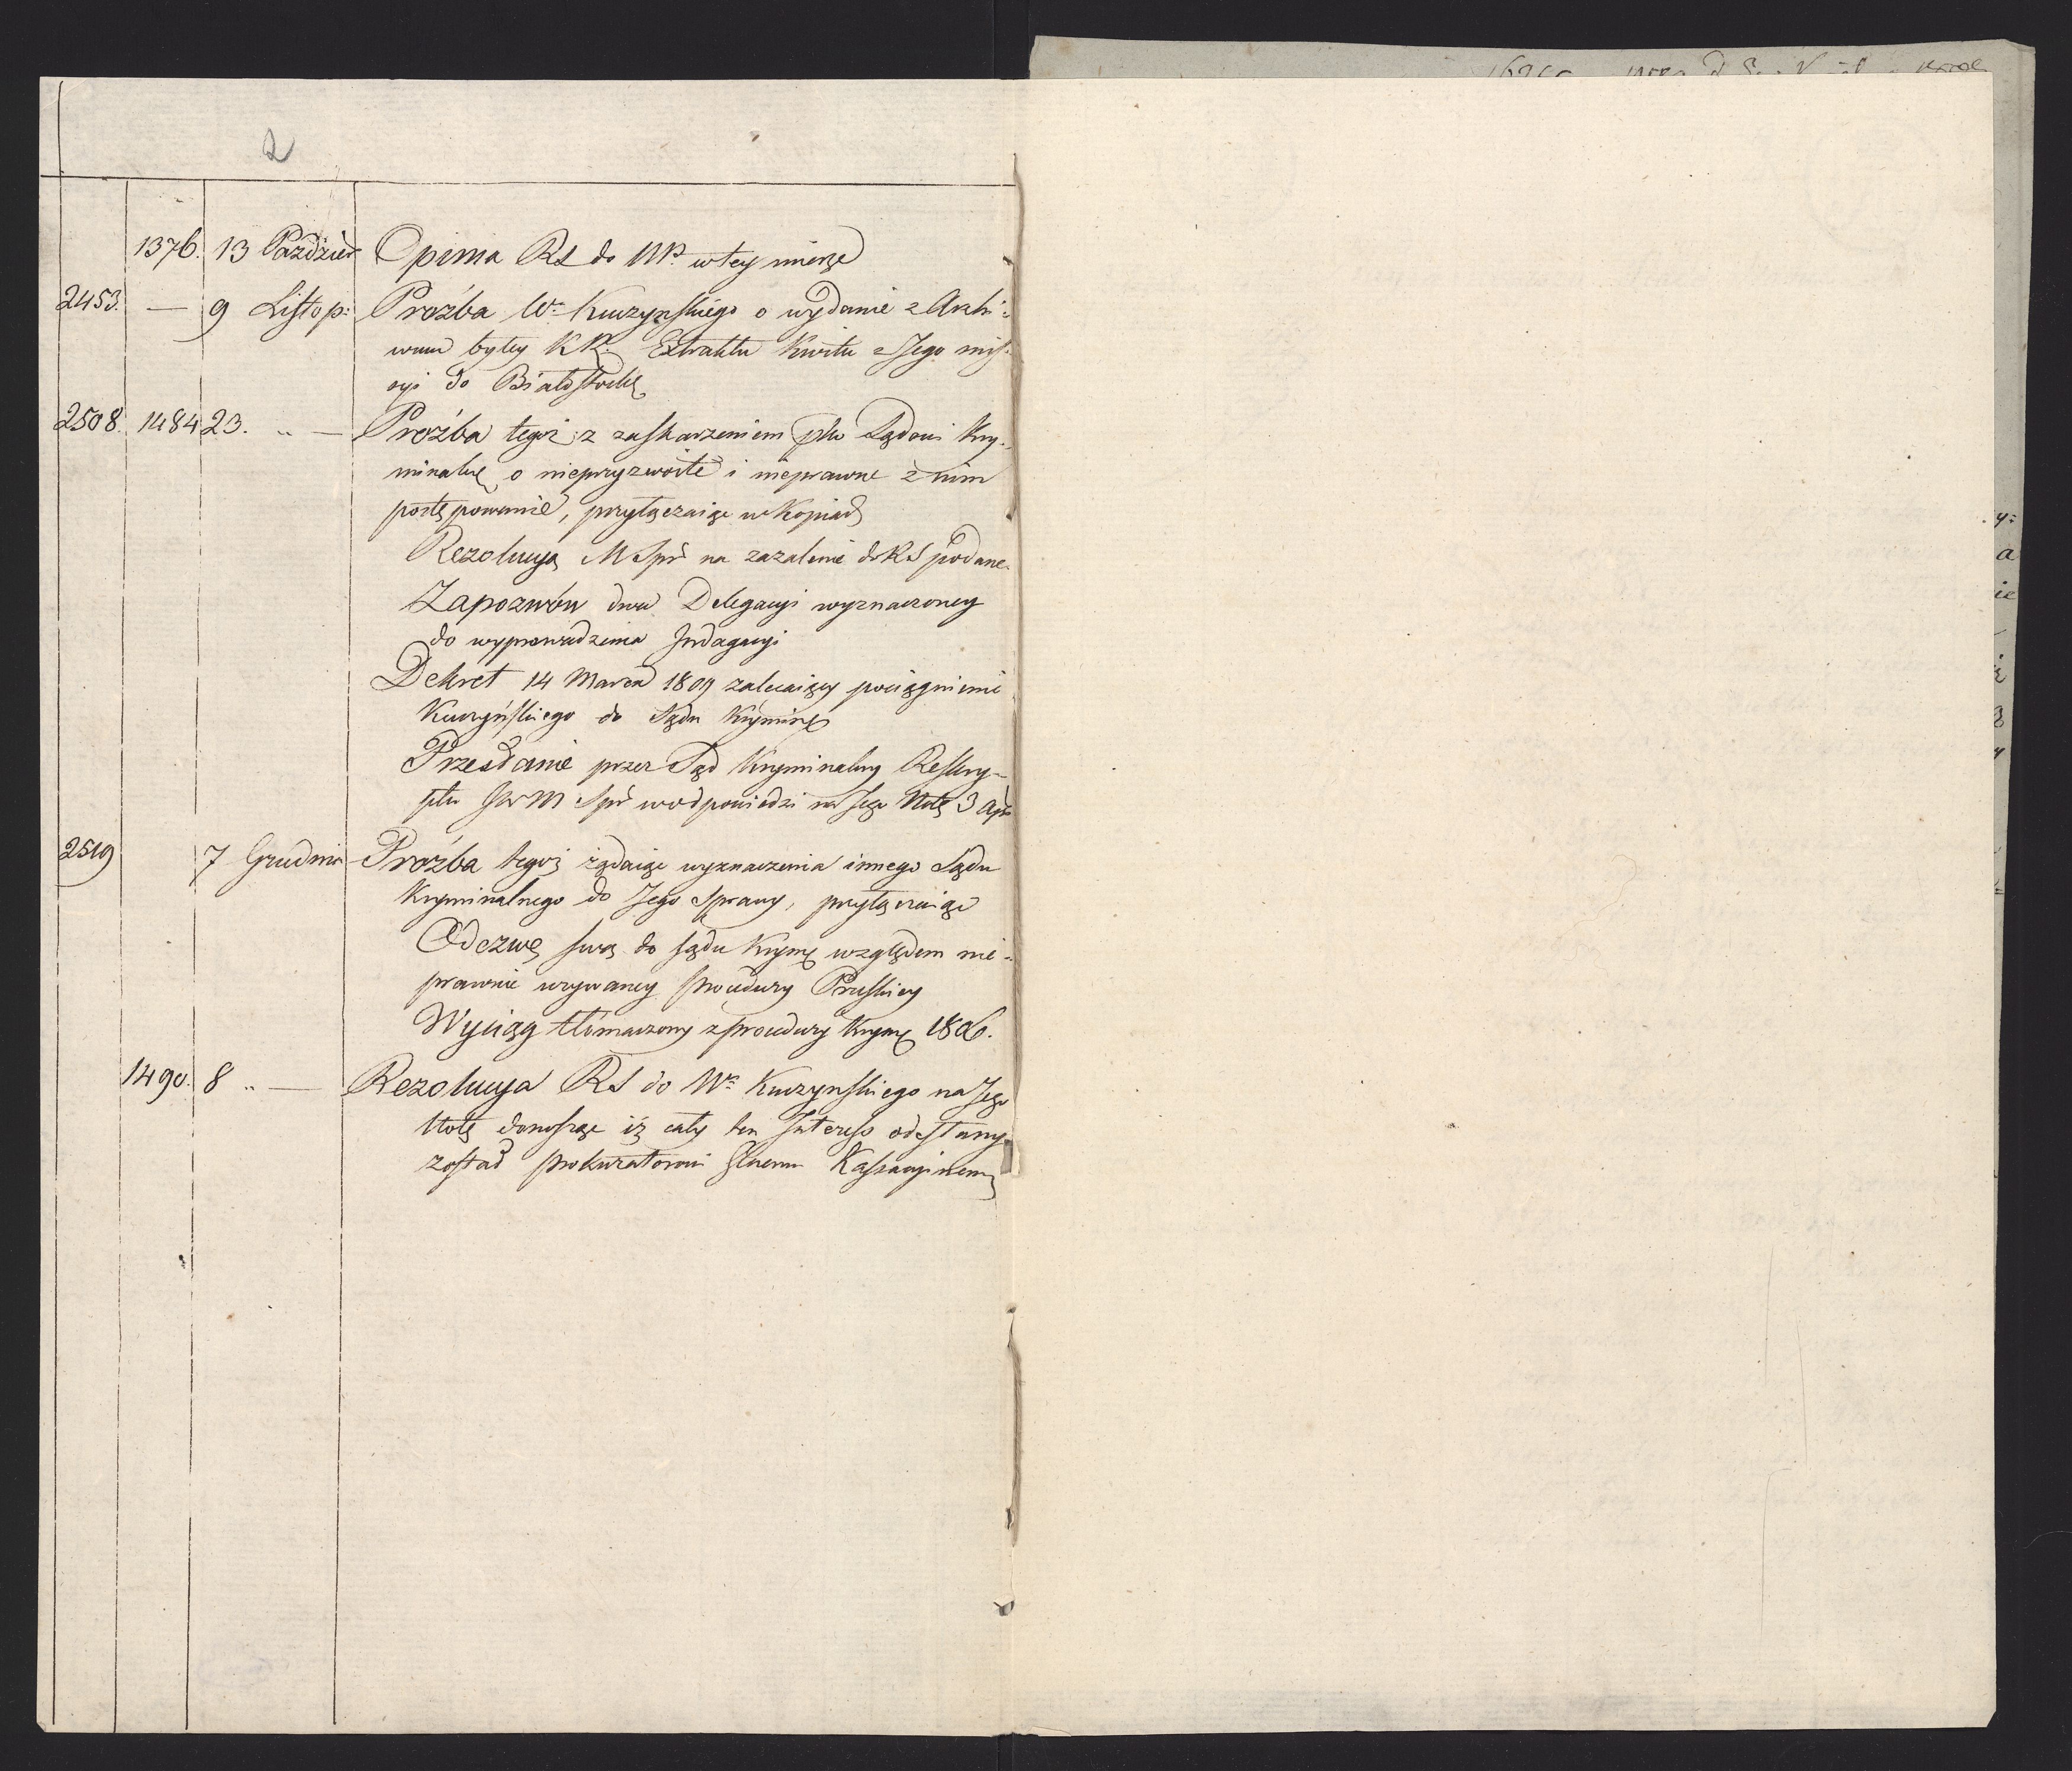 2
1376. 13 Paździer Opinia RS do NP. w tey mierze
2453. — 9 Listop: Prośba Wo Kuczyńskiego o wydanie z Archi-
wum byłey KR. Extraktu Kwitu z Jego mis-
syi do Białostocku
2508. 1484 23. „ — Prośba tegoż z zaskarzeniem płko Sądowi Kry-
minalne o nieprzyzwoite i nieprawne z nim
postępowanie, przyłączaiąc w Kopiach
Rezolucyą M Spr na zazalenie do RS podane
Zapozwów dwa Delegacyi wyznaczoney
do wyprowadzenia Indagacyi
Dekret 14 Marca 1809 zalecaiący pociągnienie
Kuczyńskiego do Sądu Krymin
Przesłanie przez Sąd Kryminalny Reskry-
ptu JW M Spr w odpowiedzi na Jego Notę 3 Apr
2519 7 Grudnia Prośba tegoż żądaiąc wyznaczenia innego Sądu
Kryminalnego do Jego Sprawy, przyłączaiąc
Odezwę swą do sądu Krym względem nie-
prawnie uzywaney procedury Pruskiey
Wyciąg tłómaczony z procedury Krym 1806.
1490. 8 „ — Rezolucya RS do Wo Kuczyńskiego na Jego
Notę donosząc iż cały ten Interess odesłany
został Prokuratorowi Głnemu Kassacyinem